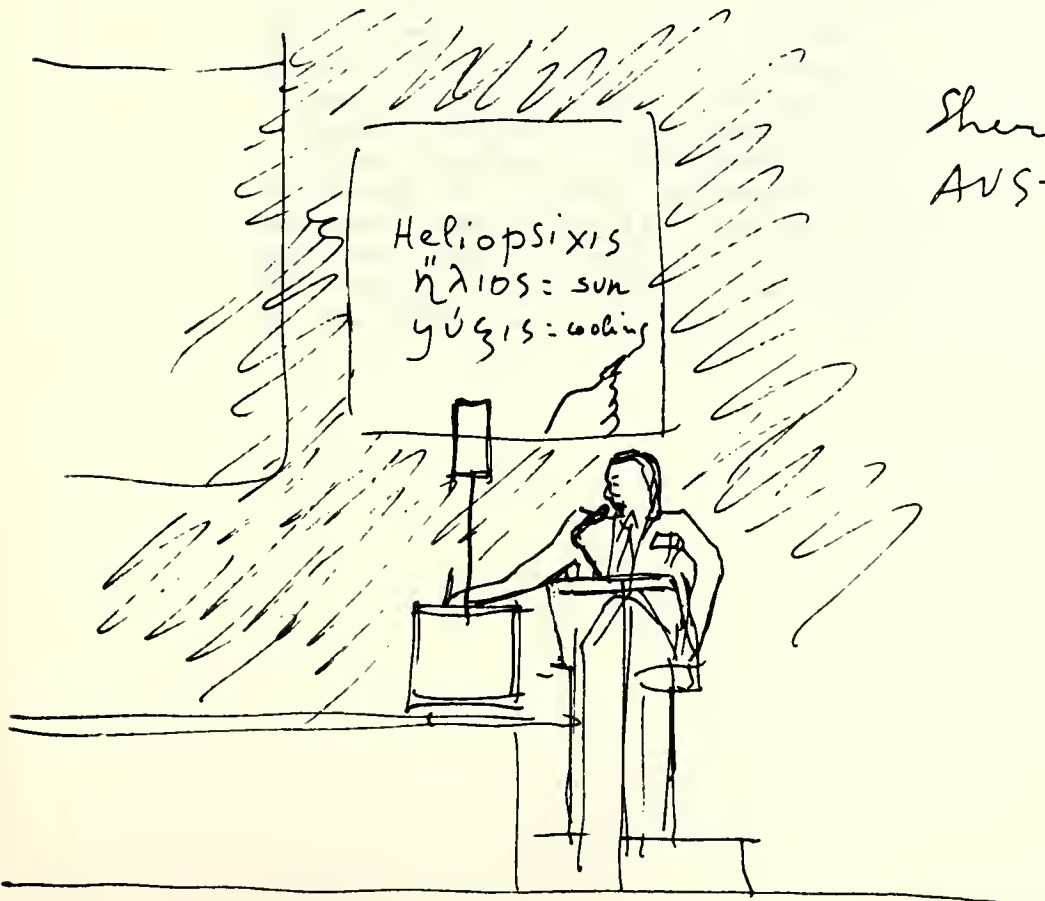 Heliopsixis
ἥλιος = sun
ψύξις = cooling